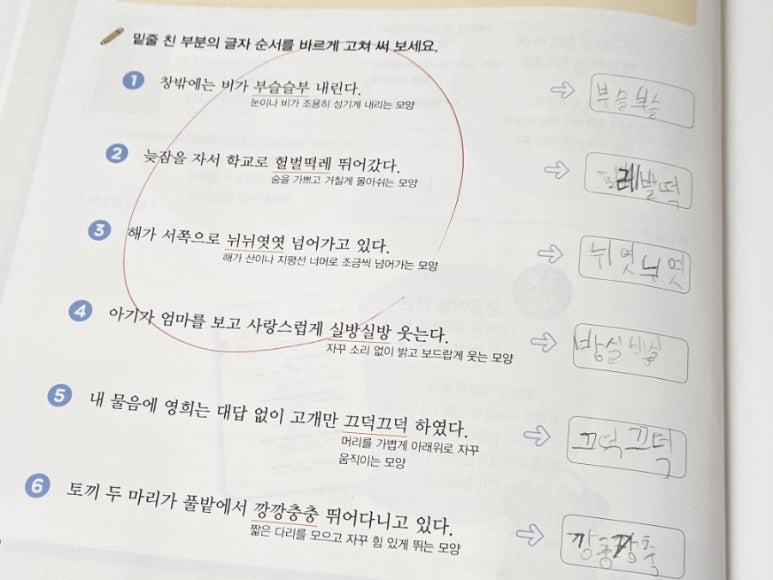 밑줄 친 부분의 글자 순서를 바르게 고쳐 써 보세요.
1 창밖에는 비가 부슬슬부 내린다. ⇨ 부슬부슬
눈이나 비가 조용히 성기게 내리는 모양
2 늦잠을 자서 학교로 헐벌떡레 뛰어갔다. ⇨ 레벌떡
숨을 가쁘고 거칠게 몰아쉬는 모양
3 해가 서쪽으로 뉘뉘엿엿 넘어가고 있다. ⇨ 뉘엿뉘엿
해가 산이나 지평선 너머로 조금씩 넘어가는 모양
4 아기가 엄마를 보고 사랑스럽게 실방실방 웃는다. ⇨ 방실방실
자꾸 소리 없이 밝고 보드랍게 웃는 모양
5 내 물음에 영희는 대답 없이 고개만 끄덕끄덕 하였다. ⇨ 끄덕끄덕
머리를 가볍게 아래위로 자꾸
움직이는 모양
6 토끼 두 마리가 풀밭에서 깡깡충충 뛰어다니고 있다. ⇨ 깡충깡충
짧은 다리를 모으고 자꾸 힘 있게 뛰는 모양